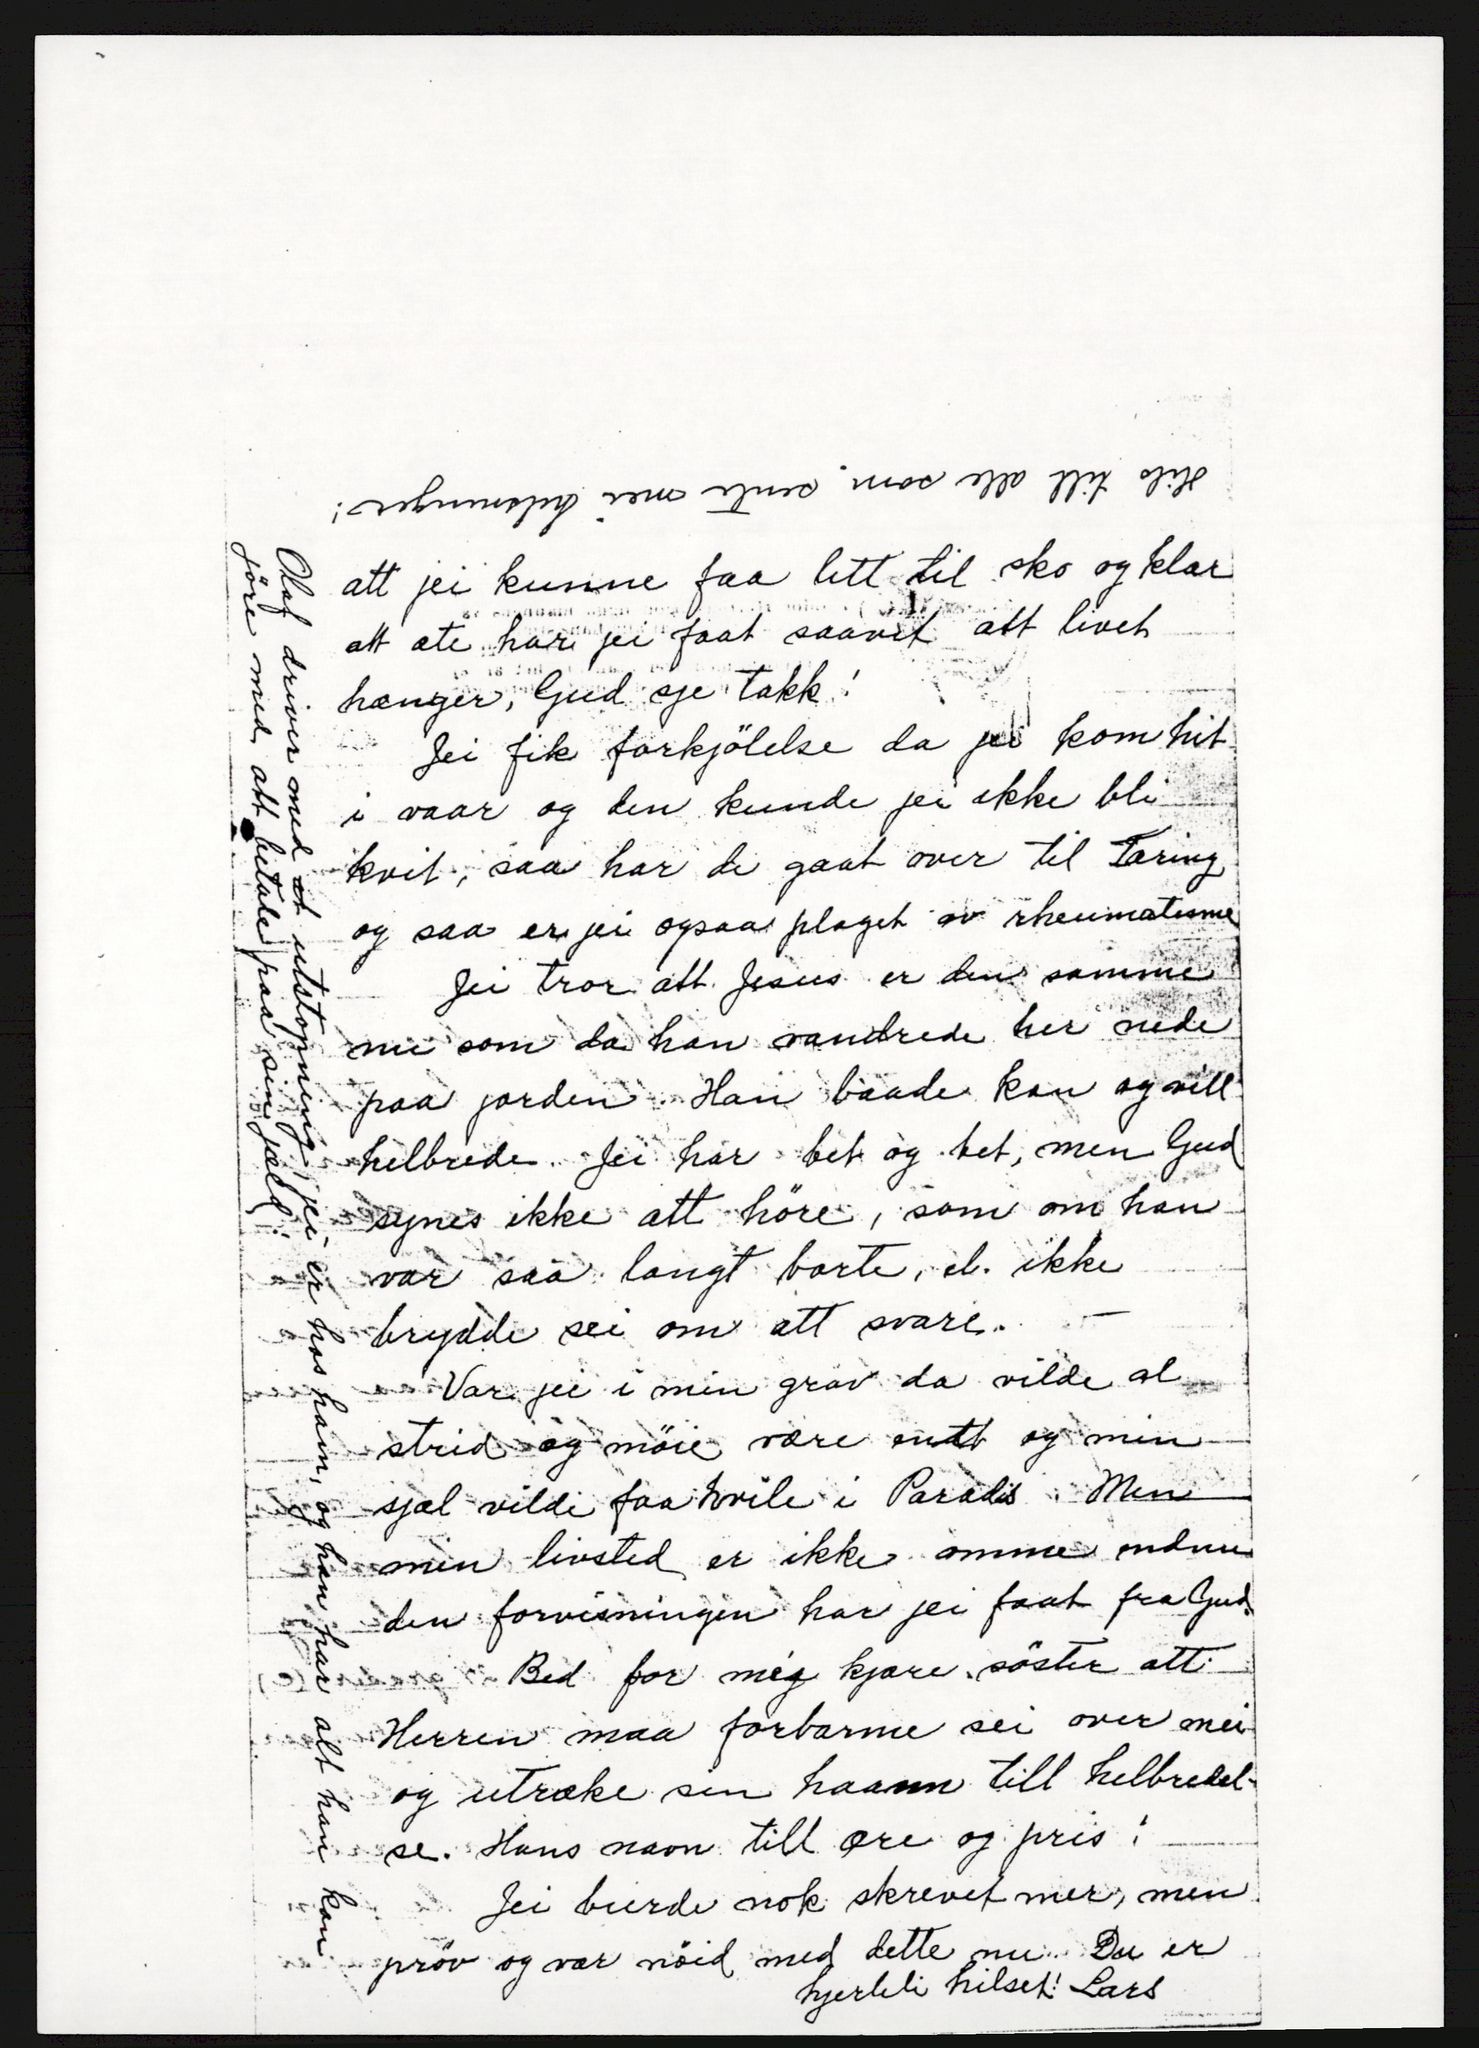 Hils till alle som sente mei hilsninger!
att jei kunne faa litt til sko og klær
att æte har jei faat saavit att livet
hænger, Gud sje takk!
Jei fik forkjölelse da jei kom hit
i vaar og den kunde jei ikke bli
kvit, saa har de gaat over til Tæring
og saa er jei ogsaa plaget av rheumatisme
Jei tror att Jesus er den samme
nu som da han vandrede her nede
paa jorden. Han baade kan og vill
helbrede. Jei har bet og bet, men Gud
synes ikke att höre, som om han
var saa langt borte, el. ikke
brydde sei om att svare. —
Var jei i min grav da vilde al
strid og möie være endt og min
sjæl vilde faa hvile i Paradis. Men
min livsted er ikke omme endnu
den forvisningen har jei faat fra Gud.
Bed for meg kjære söster att
Herren maa forbarme sei over mei
og utræke sin haann till helbredel-
se. Hans navn till ære og pris!
Jei burde nok skrevet mer, men
pröv og vær nöid med dette nu. Du er
hjerteli hilset! Lars
Olaf driver med at utstopning, jei er hos ham, og han har alt han kan
jöre med att betale paa sin jæld.